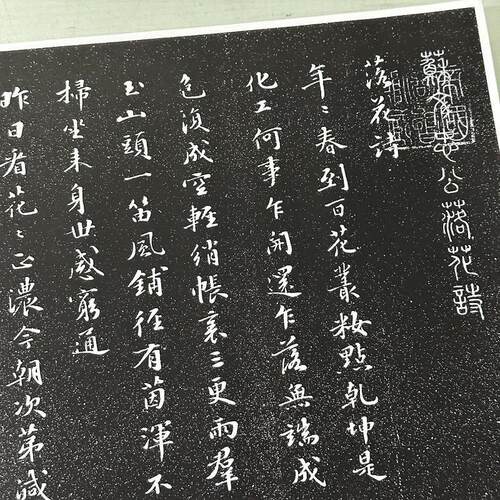 蘇文忠公落花詩
落花詩
年〻春到百花叢妝點乾坤是
化工何事乍開還乍落無端成
色復成空輕綃帳裏三更雨群
玉山頭一笛風鋪徑有茵渾不
掃坐来身世感窮通
昨日看花〻正濃今朝次第減